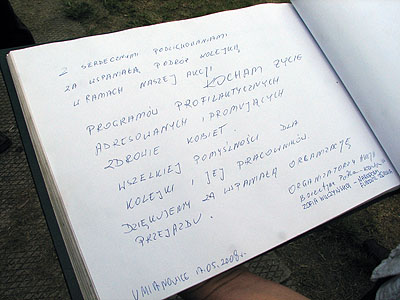 Z SERDECZNYMI PODZIĘKOWANIAMI
ZA WSPANIAŁĄ PODRÓŻ KOLEJKĄ
W RAMACH NASZEJ AKCJI KOCHAM ŻYCIE
PROGRAMÓW PROFILAKTYCZNYCH
ADRESOWANYCH I PROMUJĄCYCH
ZDROWIE KOBIET.
WSZELKIEJ POMYŚLNOŚCI DLA
KOLEJKI I JEJ PRACOWNIKÓW
DZIĘKUJEMY ZA WSPANIAŁĄ ORGANIZACJĘ
PRZEJAZDU.
ORGANIZATORZY AKCJI
ZOFIA
UMIANOWICE 17.05.2008r.